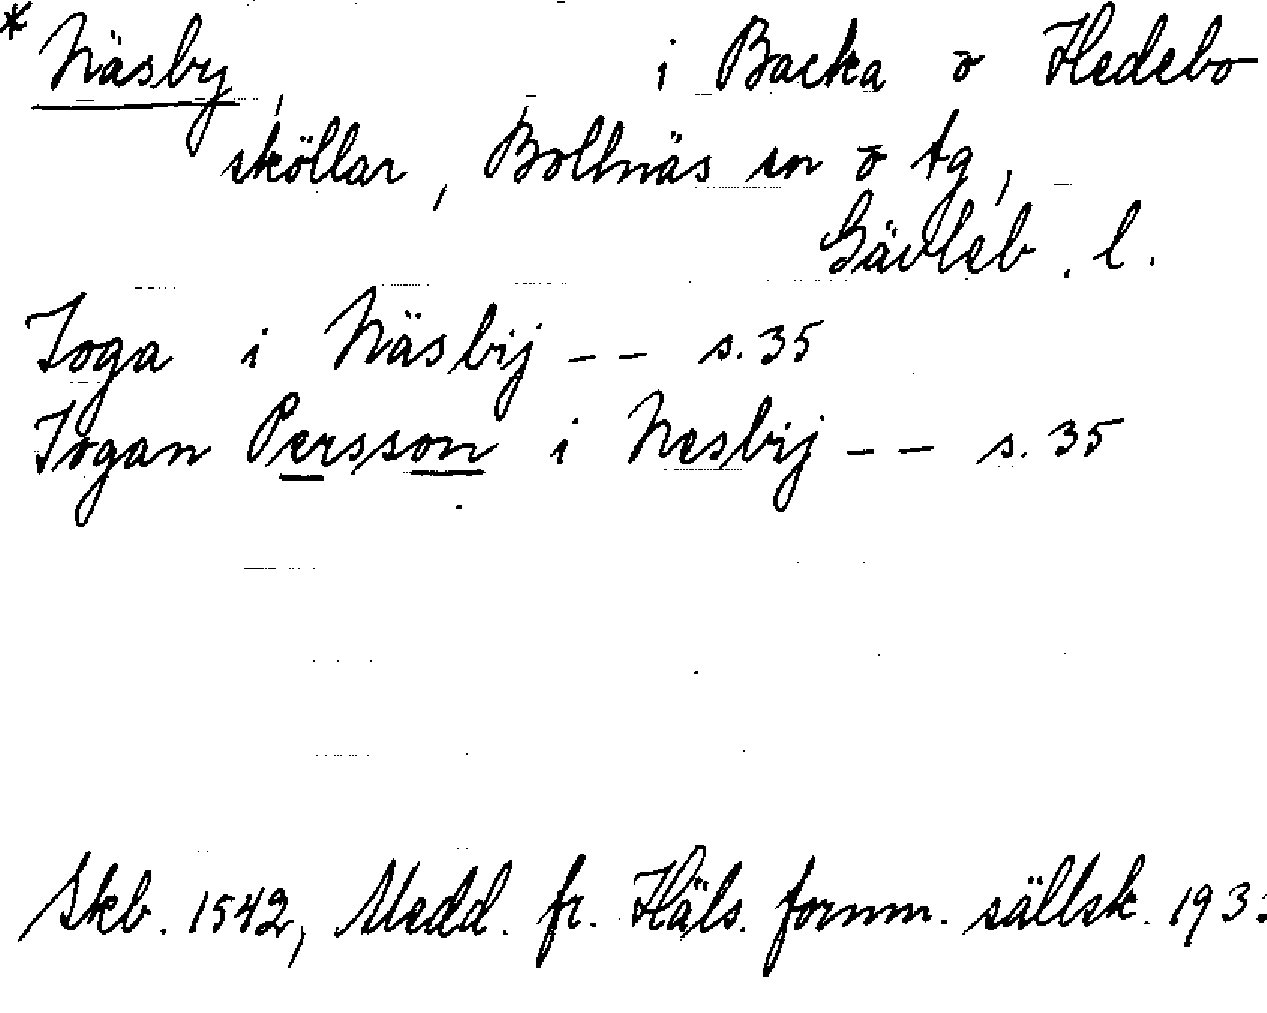 * Näsby, i Backa o Hedebo
sköllar, Bollnäs sn o tg,
Gävleb. l.
Joga i Näsbij -- s. 35
Jogan Persson i Nesbij -- s. 35
Skb. 1542, Medd. fr. Häls. fornm. sällsk. 193